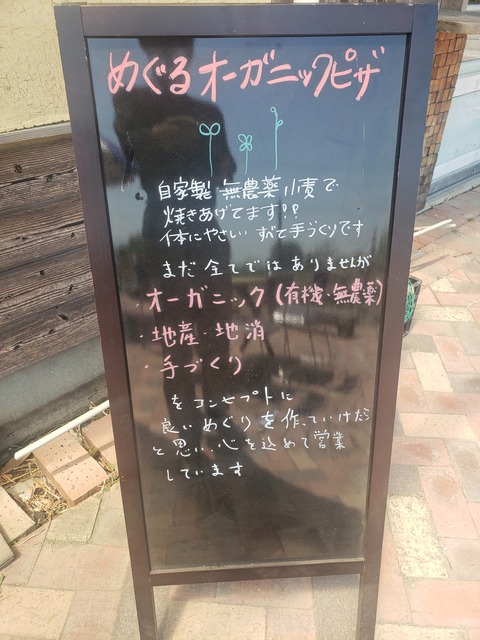 めぐるオーガニックピザ
自家製 無農薬小麦で
焼きあげてます!!
体にやさしい すべて手づくりです
まだ全てではありませんが
・オーガニック(有機・無農薬)
・地産・地消
・手づくり
をコンセプトに
良いめぐりを作っていけたら
と思い、心を込めて営業
しています